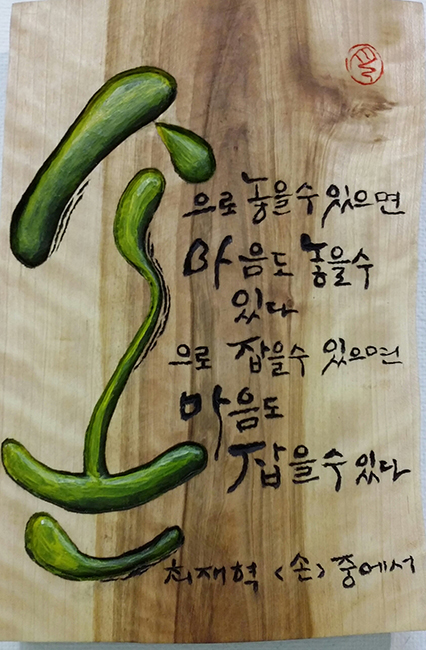 손
으로 놓을수 있으면
마음도 놓을수
있다
으로 잡을수 있으면
마음도
잡을수 있다
최재혁 <손> 중에서